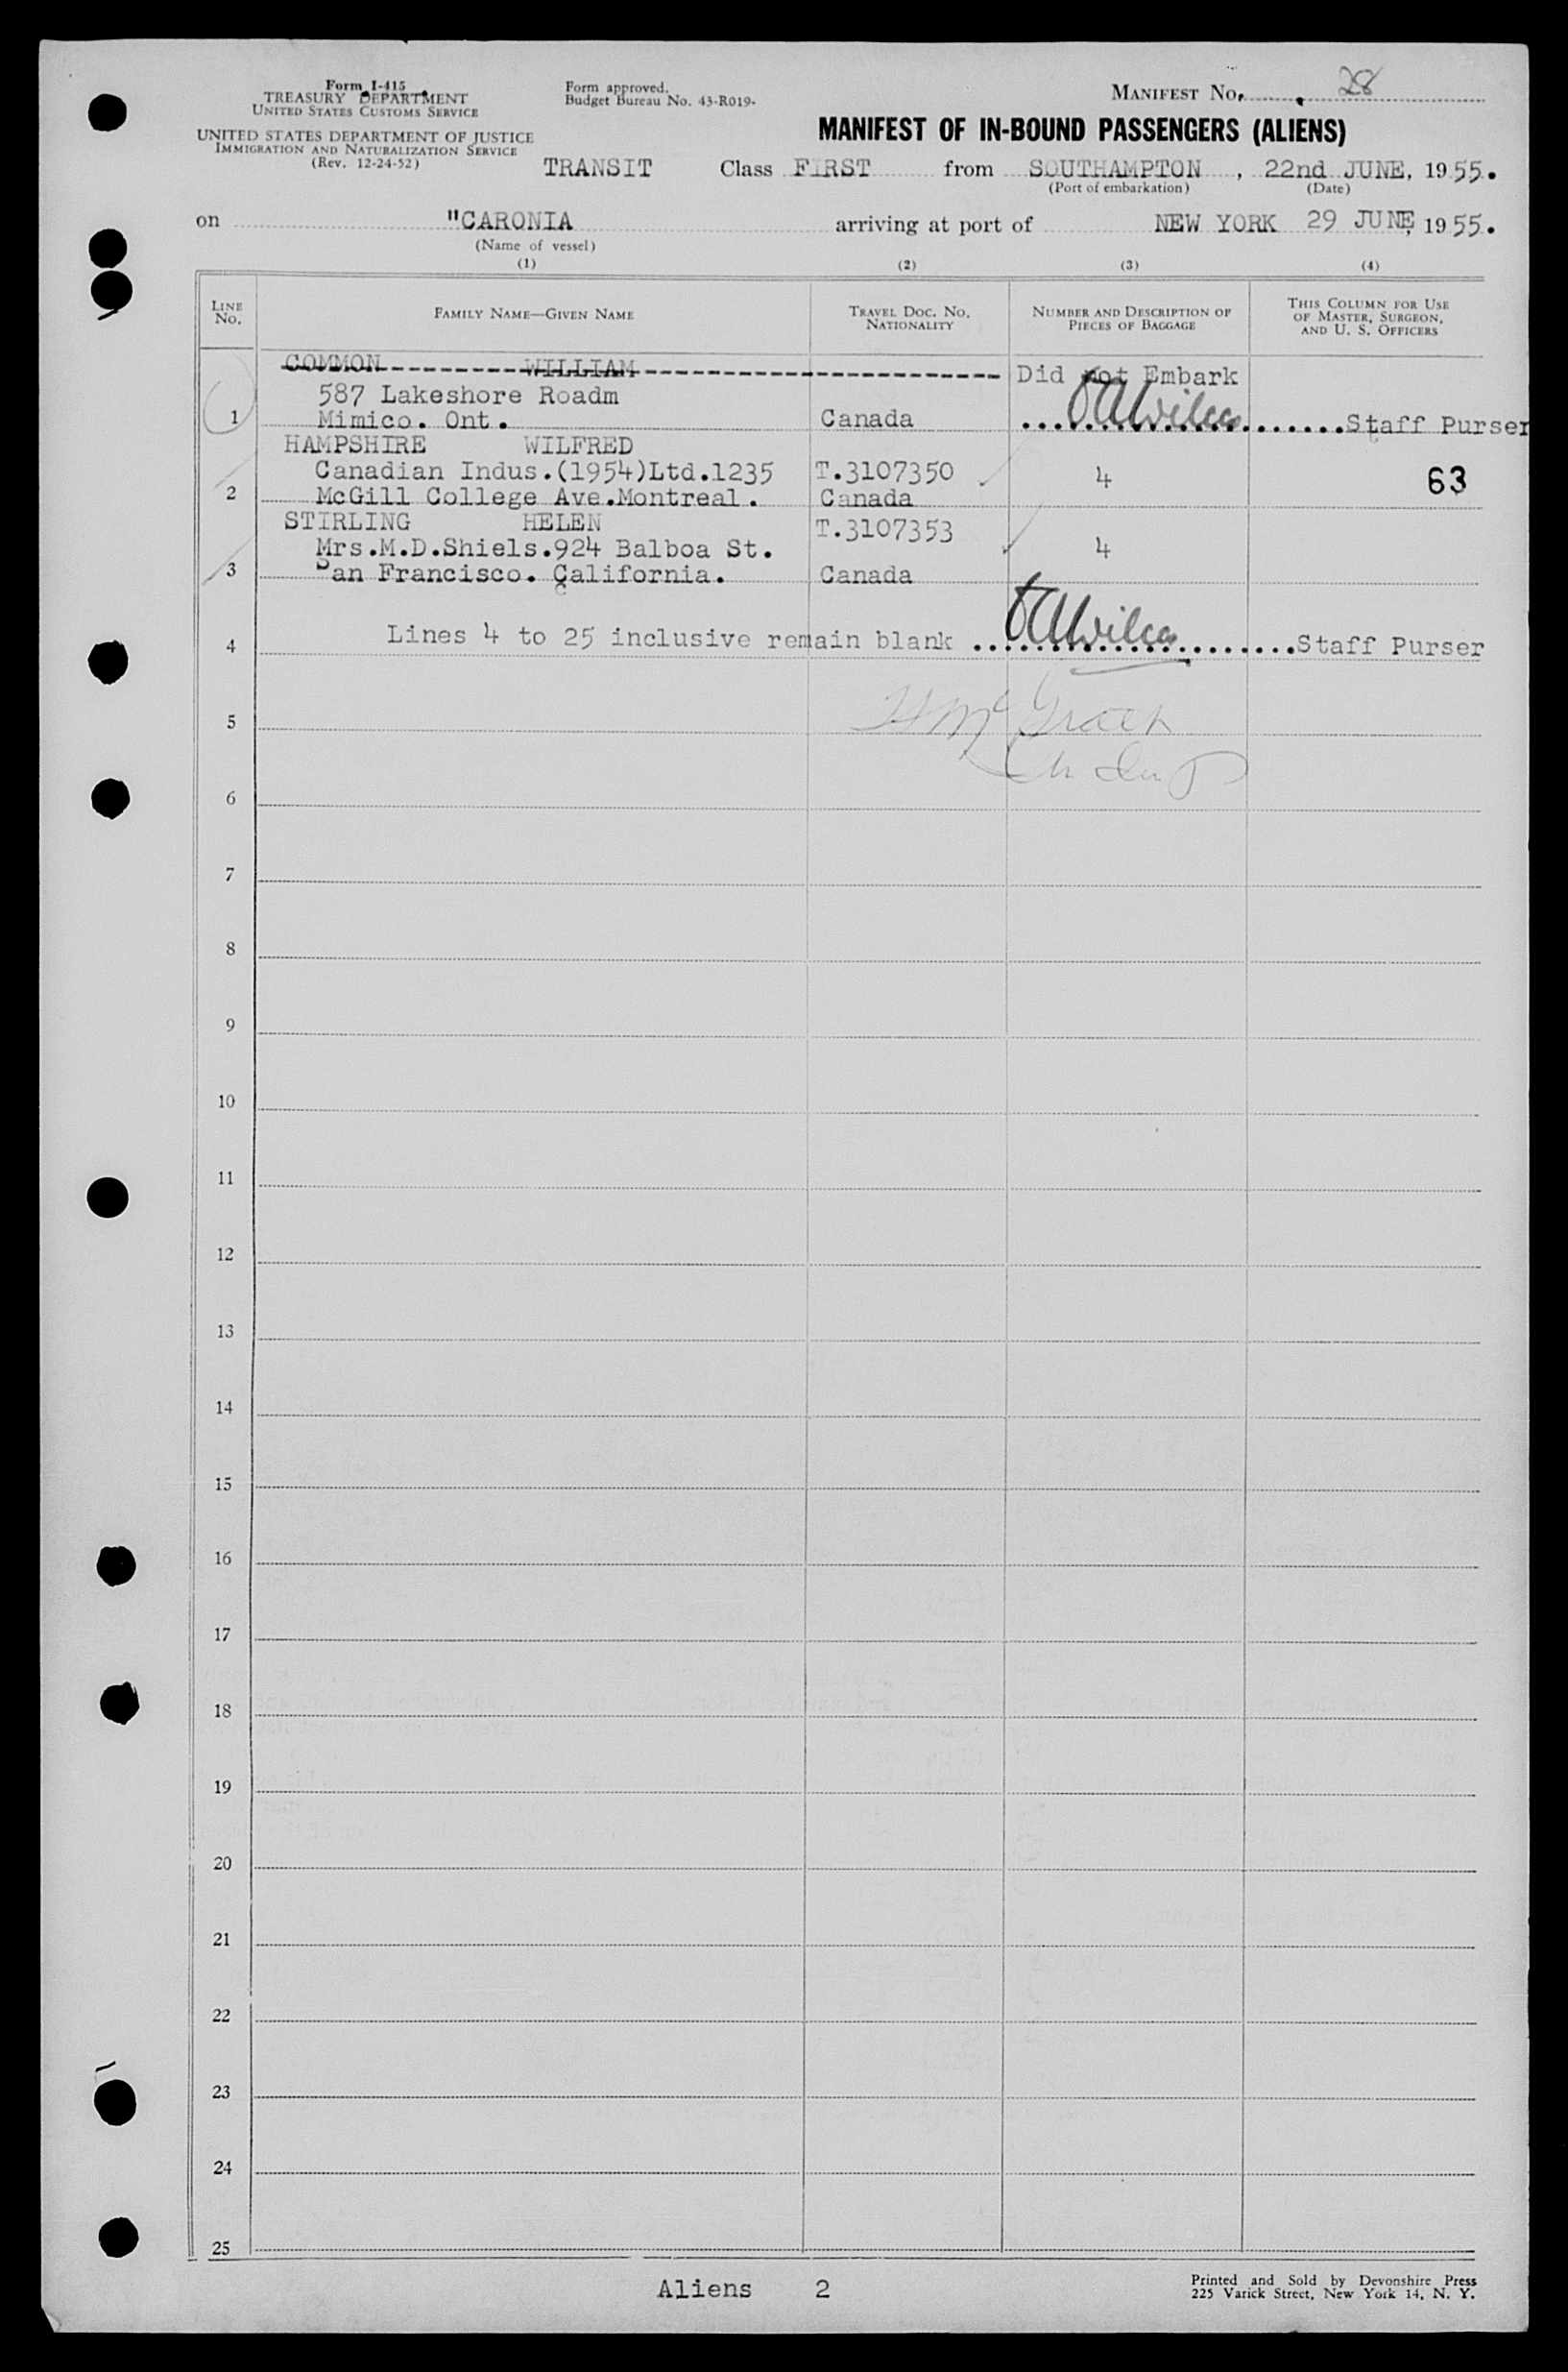 Form I-415
TREASURY DEPARTMENT
UNITED STATES CUSTOMS SERVICE
UNITED STATES DEPARTMENT OF JUSTICE
IMMIGRATION AND NATURALIZATION SERVICE
(Rev. 12-24-52)
Form approved.
Budget Bureau No. 43-R019-
MANIFEST No. 28
MANIFEST OF IN-BOUND PASSENGERS (ALIENS)
TRANSIT Class FIRST from SOUTHAMPTON, 22nd JUNE, 1955.
(Port of embarkation) (Date)
on "CARONIA arriving at port of NEW YORK 29 JUNE, 1955.
(Name of vessel)
(1) (2) (3) (4)
LINE No. FAMILY NAME—GIVEN NAME TRAVEL DOC. No. NATIONALITY NUMBER AND DESCRIPTION OF PIECES OF BAGGAGE THIS COLUMN FOR USE OF MASTER, SURGEON, AND U. S. OFFICERS
COMMON WILLIAM Did not Embark
587 Lakeshore Roadm
1 Mimico. Ont. Canada Staff Purser
HAMPSHIRE WILFRED
Canadian Indus.(1954)Ltd.1235 T.3107350 4 63
2 McGill College Ave.Montreal. Canada
STIRLING HELEN T.3107353
Mrs.M.D.Shiels.924 Balboa St. 4
3 San Francisco. California. Canada
4 Lines 4 to 25 inclusive remain blank Staff Purser
5 H McGrath
6
7
8
9
10
11
12
13
14
15
16
17
18
19
20
21
22
23
24
25
Aliens 2
Printed and Sold by Devonshire Press
225 Varick Street, New York 14, N. Y.